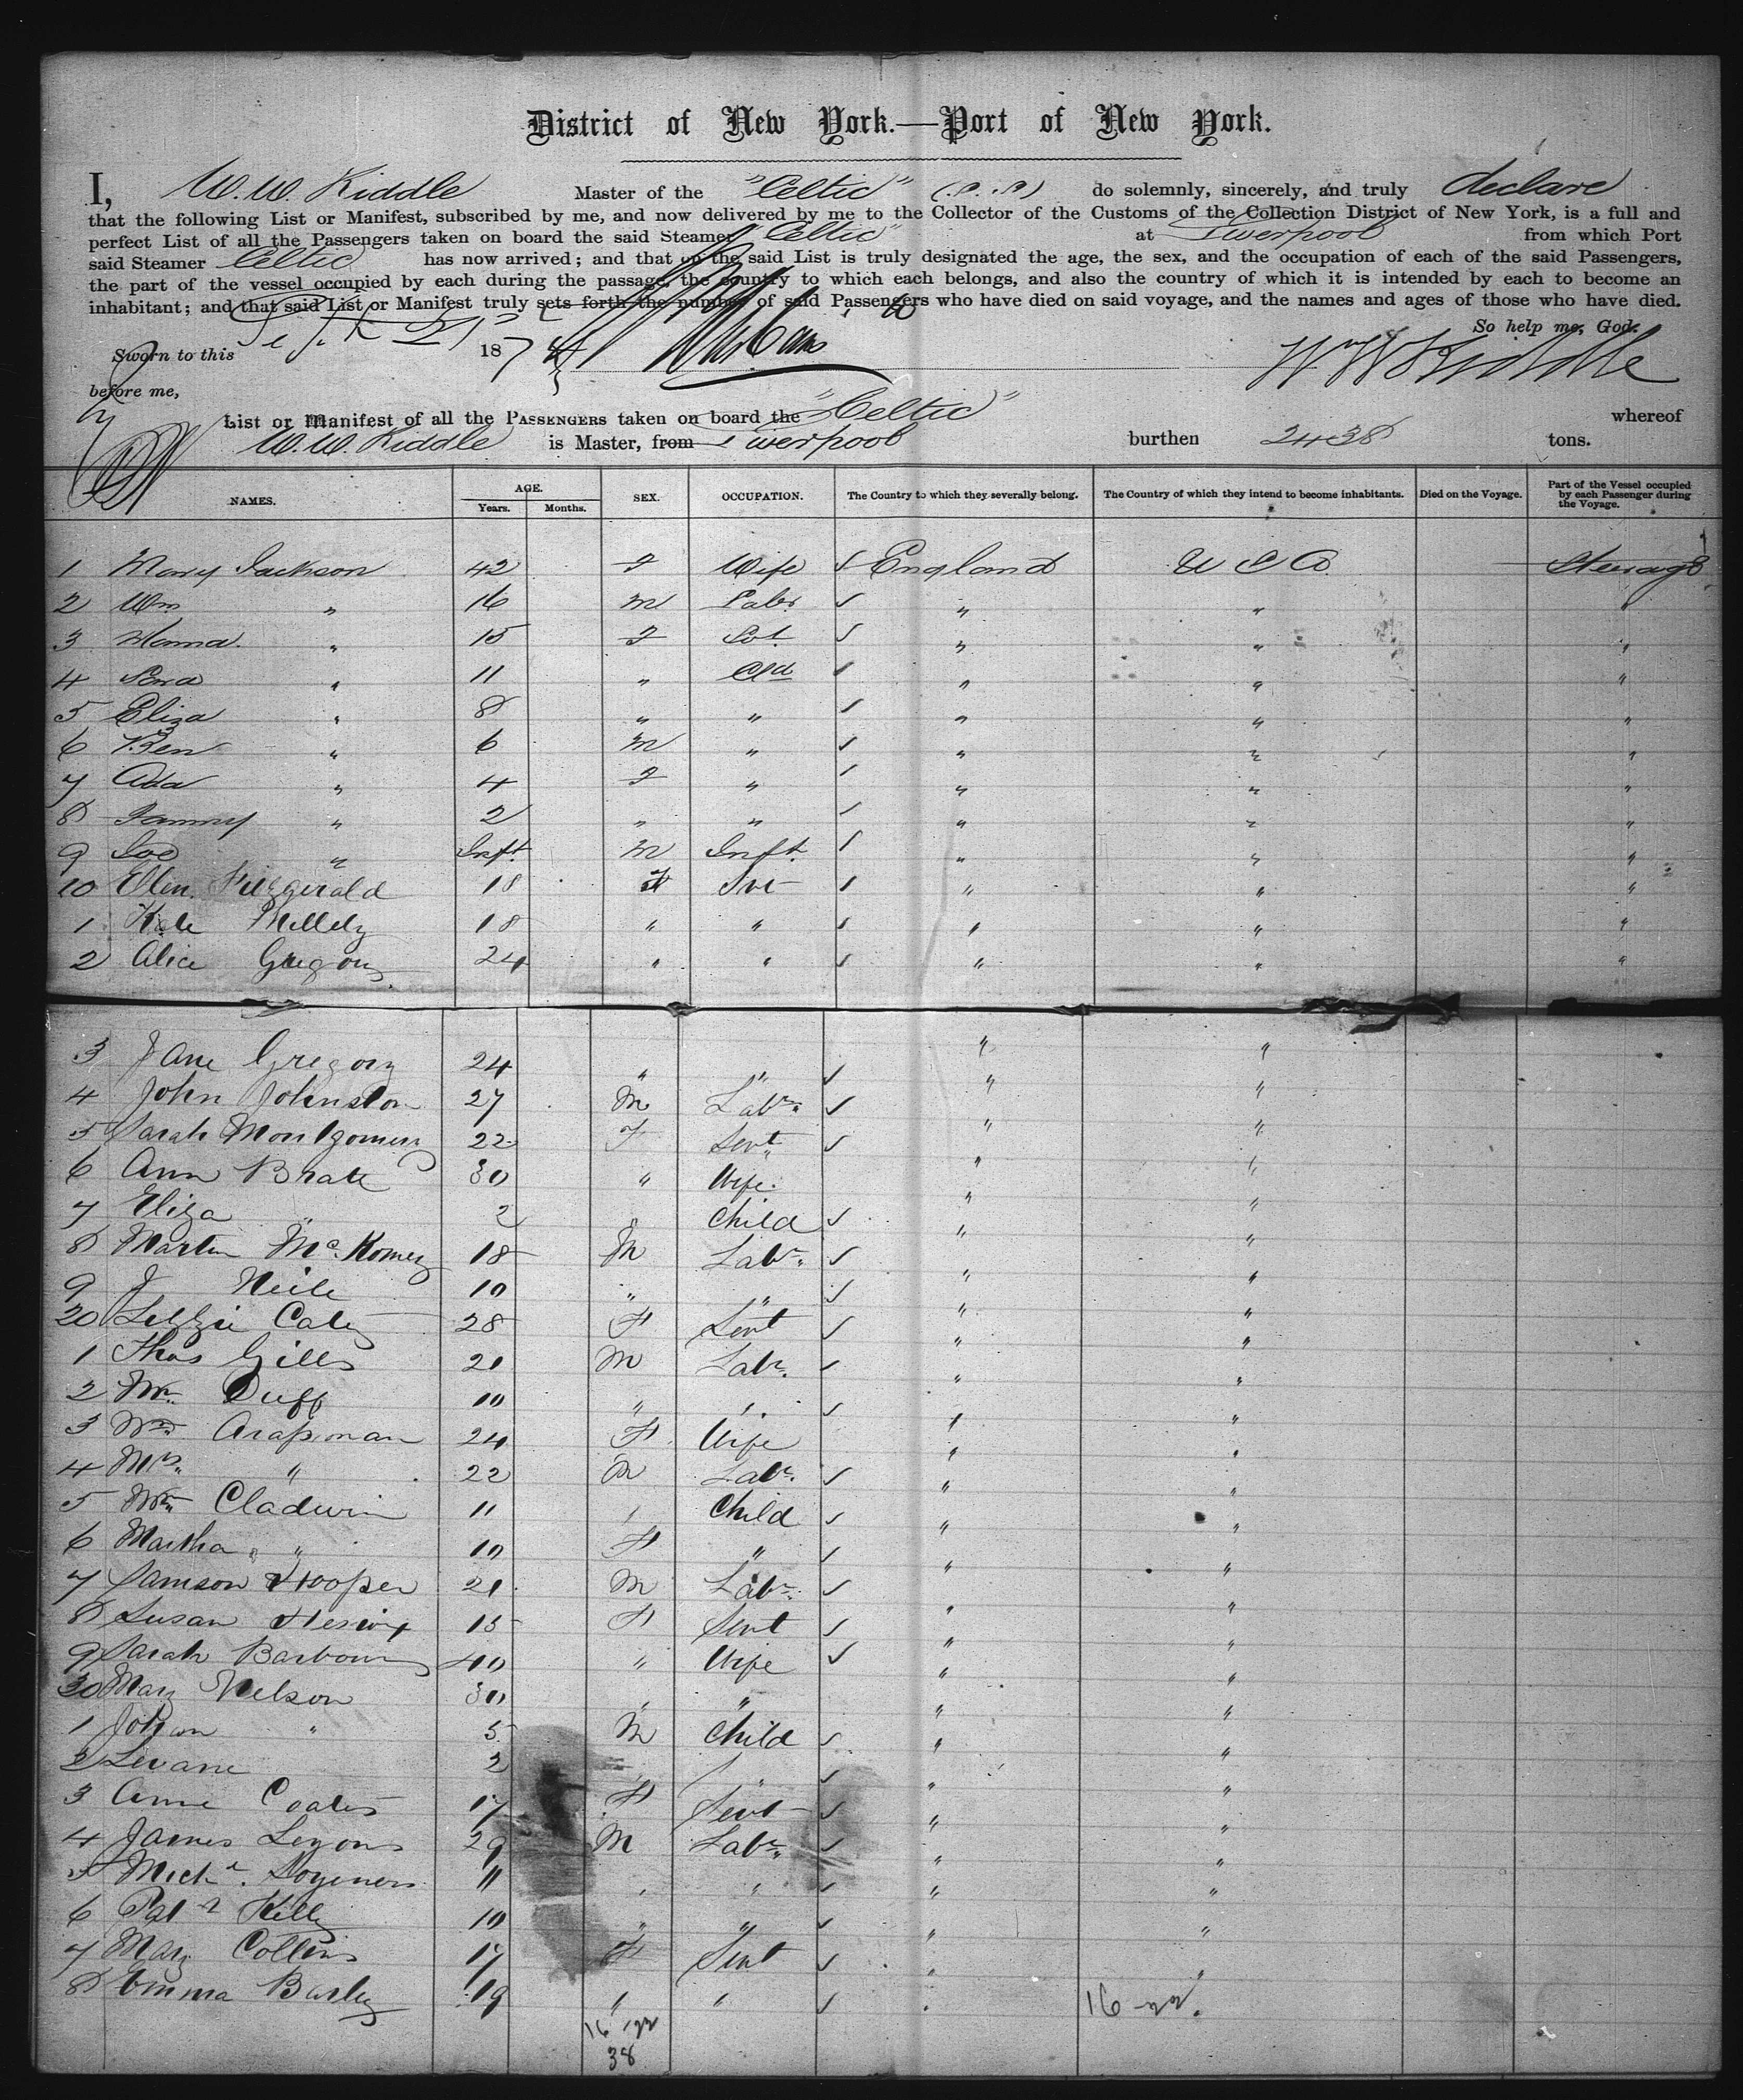 District of New York.—Port of New York.
I, W. W. Kiddle Master of the "Celtic" (S.S) do solemnly, sincerely, and truly declare
that the following List or Manifest, subscribed by me, and now delivered by me to the Collector of the Customs of the Collection District of New York, is a full and
perfect List of all the Passengers taken on board the said Steamer "Celtic" at Liverpool from which Port
said Steamer Celtic has now arrived; and that on the said List is truly designated the age, the sex, and the occupation of each of the said Passengers,
the part of the vessel occupied by each during the passage, the country to which each belongs, and also the country of which it is intended by each to become an
inhabitant; and that said List or Manifest truly sets forth the number of said Passengers who have died on said voyage, and the names and ages of those who have died.
So help me, God.
Sworn to this Sept 21 1874 W W Kiddle
before me,
List or Manifest of all the PASSENGERS taken on board the "Celtic" whereof
W. W. Kiddle is Master, from Liverpool burthen 2438 tons.
NAMES. AGE. SEX. OCCUPATION. The Country to which they severally belong. The Country of which they intend to become inhabitants. Died on the Voyage. Part of the Vessel occupied by each Passenger during the Voyage.
Years. Months.
1 Mary Jackson 42 F Wife ✓ England U S A Steerage
2 Wm " 16 M Labr ✓ " " "
3 Hanna " 15 F Svt ✓ " " "
4 " 11 " Cld ✓ " " "
5 Eliza " 8 " " ✓ " " "
6 Ben " 6 M " ✓ " " "
7 Ada " 4 F " ✓ " " "
8 Fanny " 2 " " ✓ " " "
9 Joe " Inft. M Inft. ✓ " " "
10 Ellen Fitzgerald 18 F Svt ✓ " " "
1 Kate 18 " " ✓ " " "
2 Alice Gregory 24 " " ✓ " " "
3 Jane Gregory 24 " " ✓ " "
4 John Johnston 27 M Labr. ✓ " "
5 Sarah Montgomery 22 F Servt ✓ " "
6 Ann 30 " Wife. " "
7 Eliza " 2 " Child ✓ " "
8 Martin 18 M Labr. ✓ " "
9 J Neile 10 " " ✓ " "
20 Lizzie 28 F Servt ✓ " "
1 Thos Gills 21 M Labr. ✓ " "
2 Wm. Duff 10 " " ✓ " "
3 24 F Wife " "
4 " 22 M Labr. ✓ " "
5 Wm Cladwin 11 " Child ✓ " "
6 Martha " 10 F " ✓ " "
7 Samson Hooper 21 M Labr. ✓ " "
8 Susan 15 F Servt ✓ " "
9 Sarah Barbour 40 " Wife ✓ " "
30 Mary Nelson 30 " " " "
1 " 5 M Child ✓ " "
2 2 " " ✓ " "
3 Anne Coates 17 F Servt ✓ " "
4 James Lyons 29 M Labr. ✓ " "
5 Michl. 11 " " ✓ " "
6 Patk Kelly 10 " " ✓ " "
7 Mary Collins 17 F Servt ✓ " "
8 Emma 19 " " ✓ "
16-22.
16 22
38